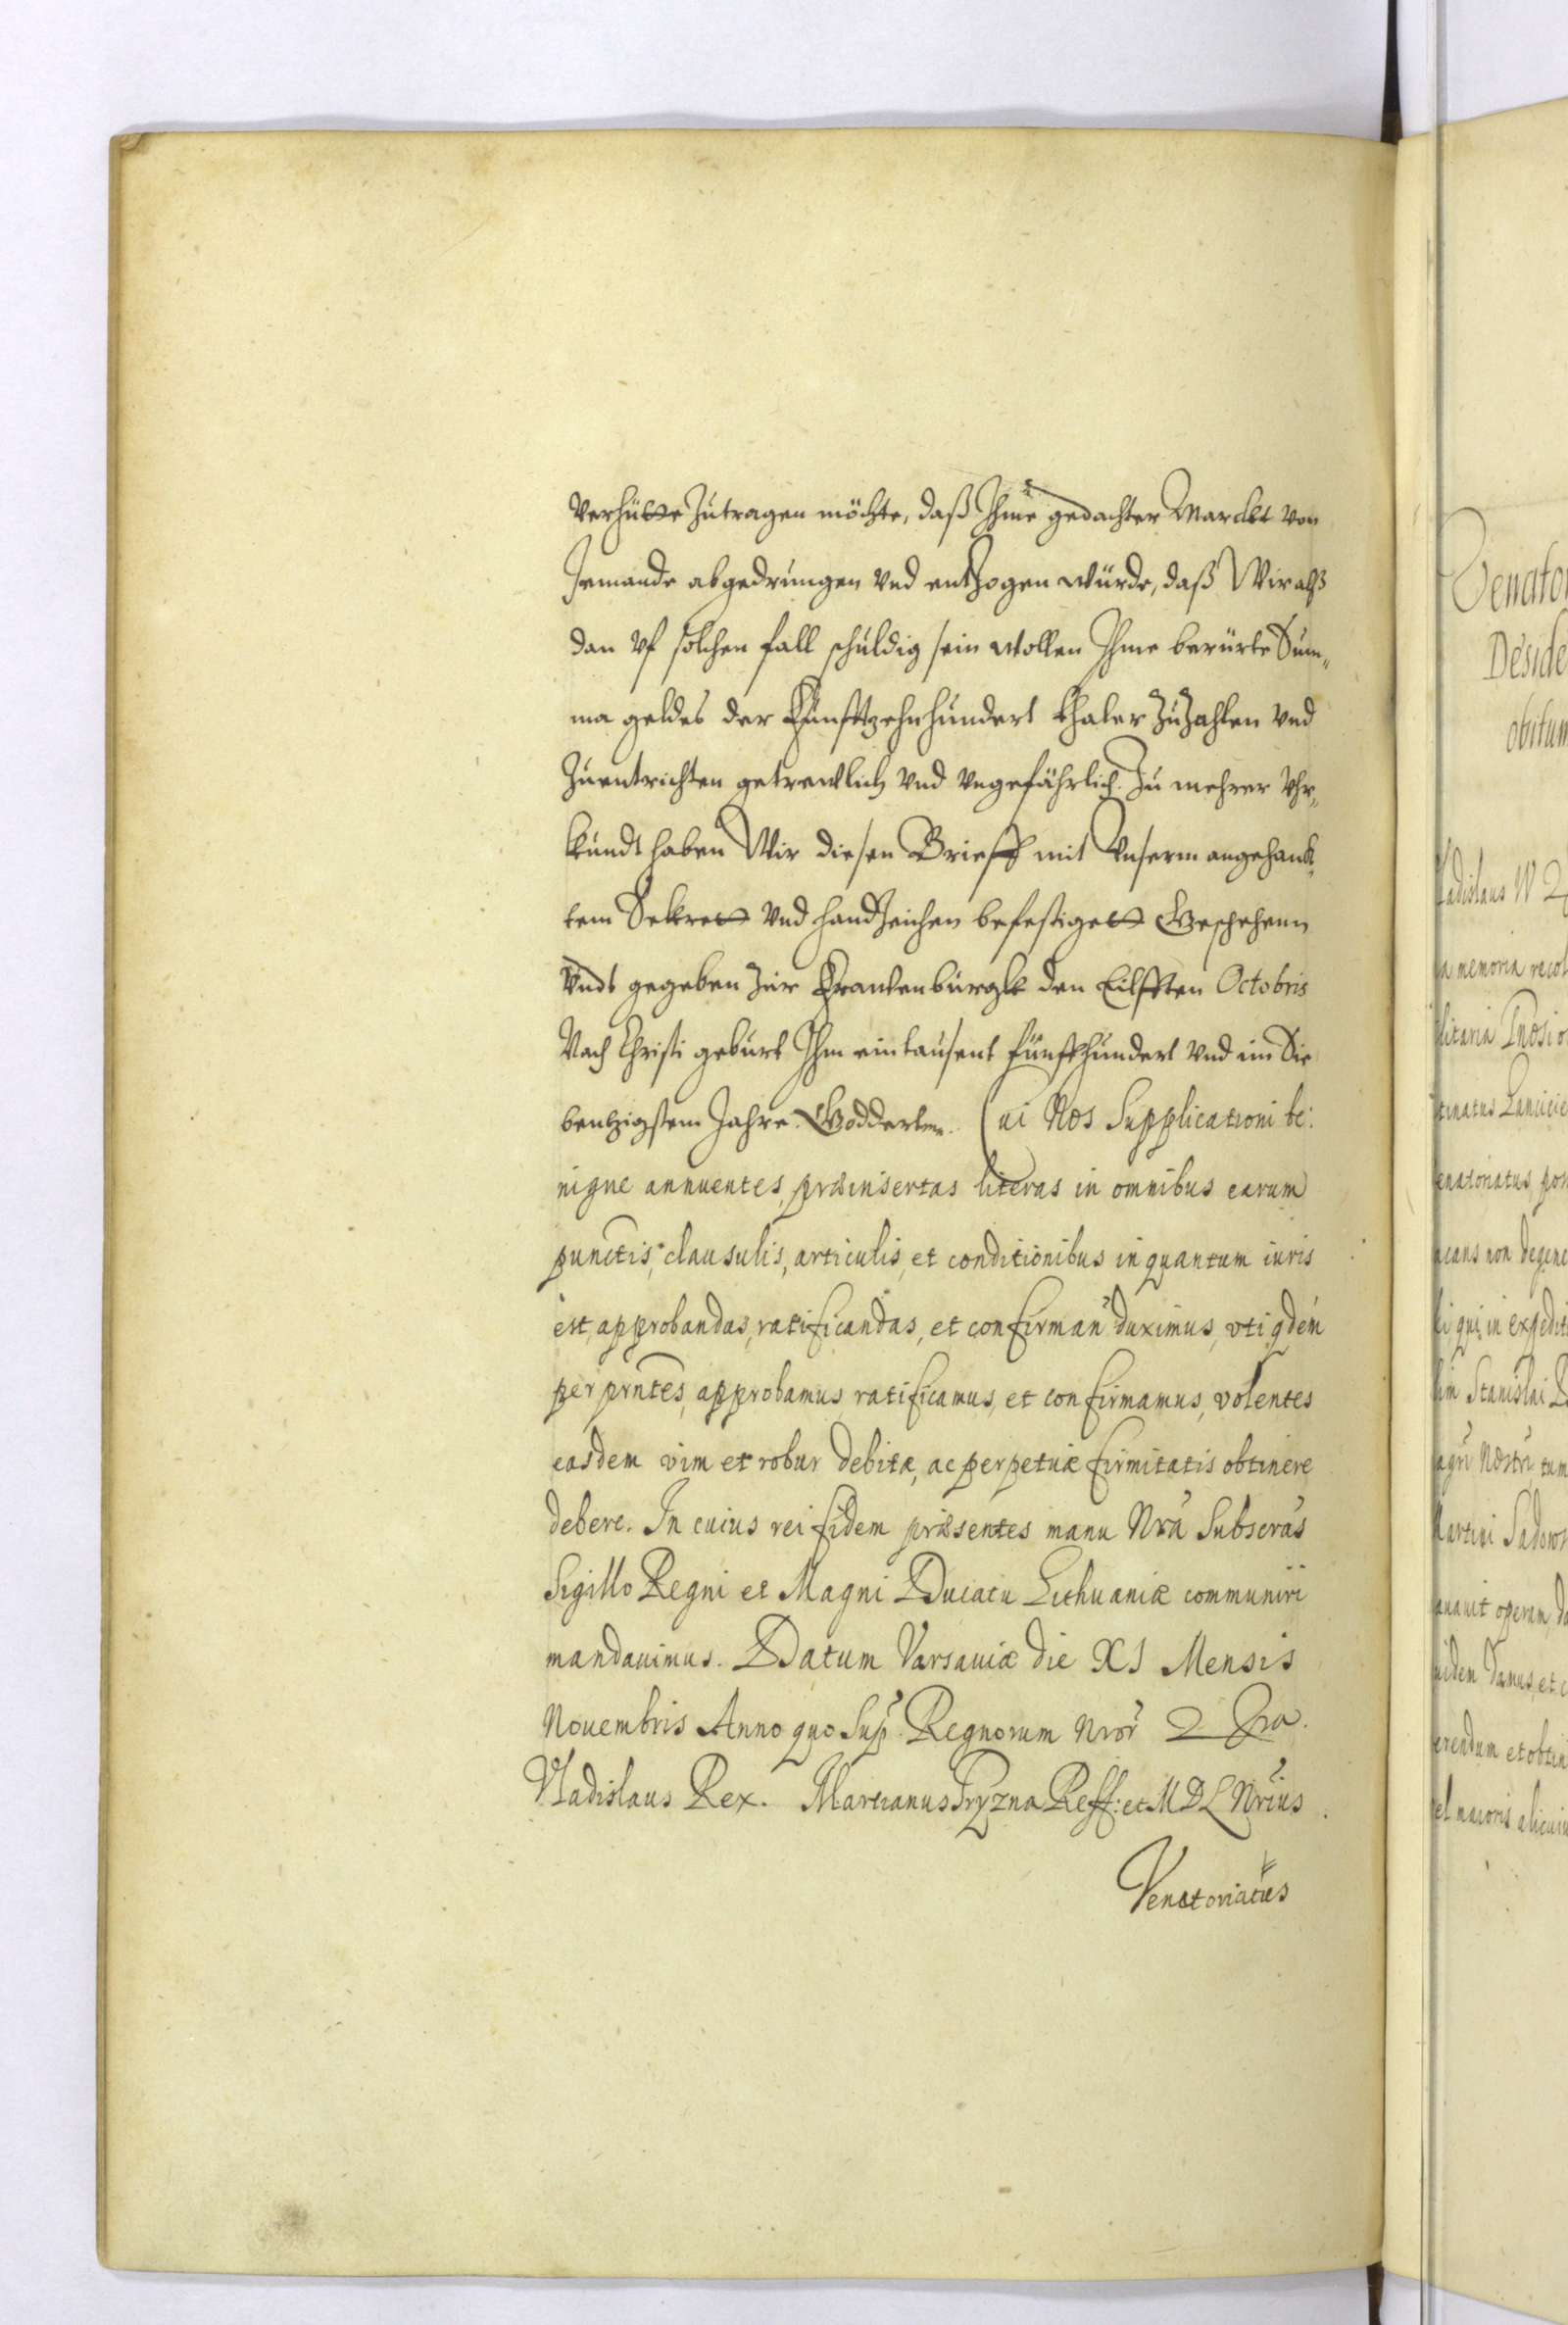 verhütte zutragen möchte, daß Ihme gedachter Marckt von
Jemande abgedrungen vnd entzogen würde, daß Wir alß
dan vf solchen fall schuldig sein wollen Ihme berürte Sum„
ma geldes der Fünfftzehnhundert thaler zuzahlen vnd
zuentrichten getrewlich vnd vngefährlich. Zu mehrer Vhr„
kundt haben Wir diesen Brieff mit Vnserm angehank„
tem Sekrett vnd handzeichen befestigett Geschehenn
Vndt gegeben zur Frauenburgk den Eilfften Octobris
Nach Christi geburt Ihm eintausent fünffhundert vnd im Sie
bentzigstem Jahre. Cui Nos Supplicationi be:
nigne annuentes, præinsertas literas in omnibus earum
punctis, clausulis, articulis, et conditionibus in quantum iuris
est, approbandas, ratificandas, et confirman duximus, vti qdem
per pntes, approbamus ratificamus, et confirmamus, volentes
easdem vim et robur debitæ, ac perpetuæ firmitatis obtinere
debere. In cuius rei fidem præsentes manu Nra Subscras
Sigillo Regni et Magni Ducatu Lithuaniæ communiri
mandauimus. Datum Varsauiæ die XI Mensis
Nouembris Anno quo Sup. Regnorum Nror
Vladislaus Rex. Martianus Tryzna Reff: et M D L Nrius.
Venatoriatus
Venator
Deside
obitum
ladislaus
a memoria recol
litaria
tinatus Lancicie
enatoriatus, pos
icans non degene
li qui in expedit
lim Stanislai
agri Nostri tum
Martini Sadows
auauit operam, do
uidem Damus, et c
erendum et obtin
el maioris alicuiu